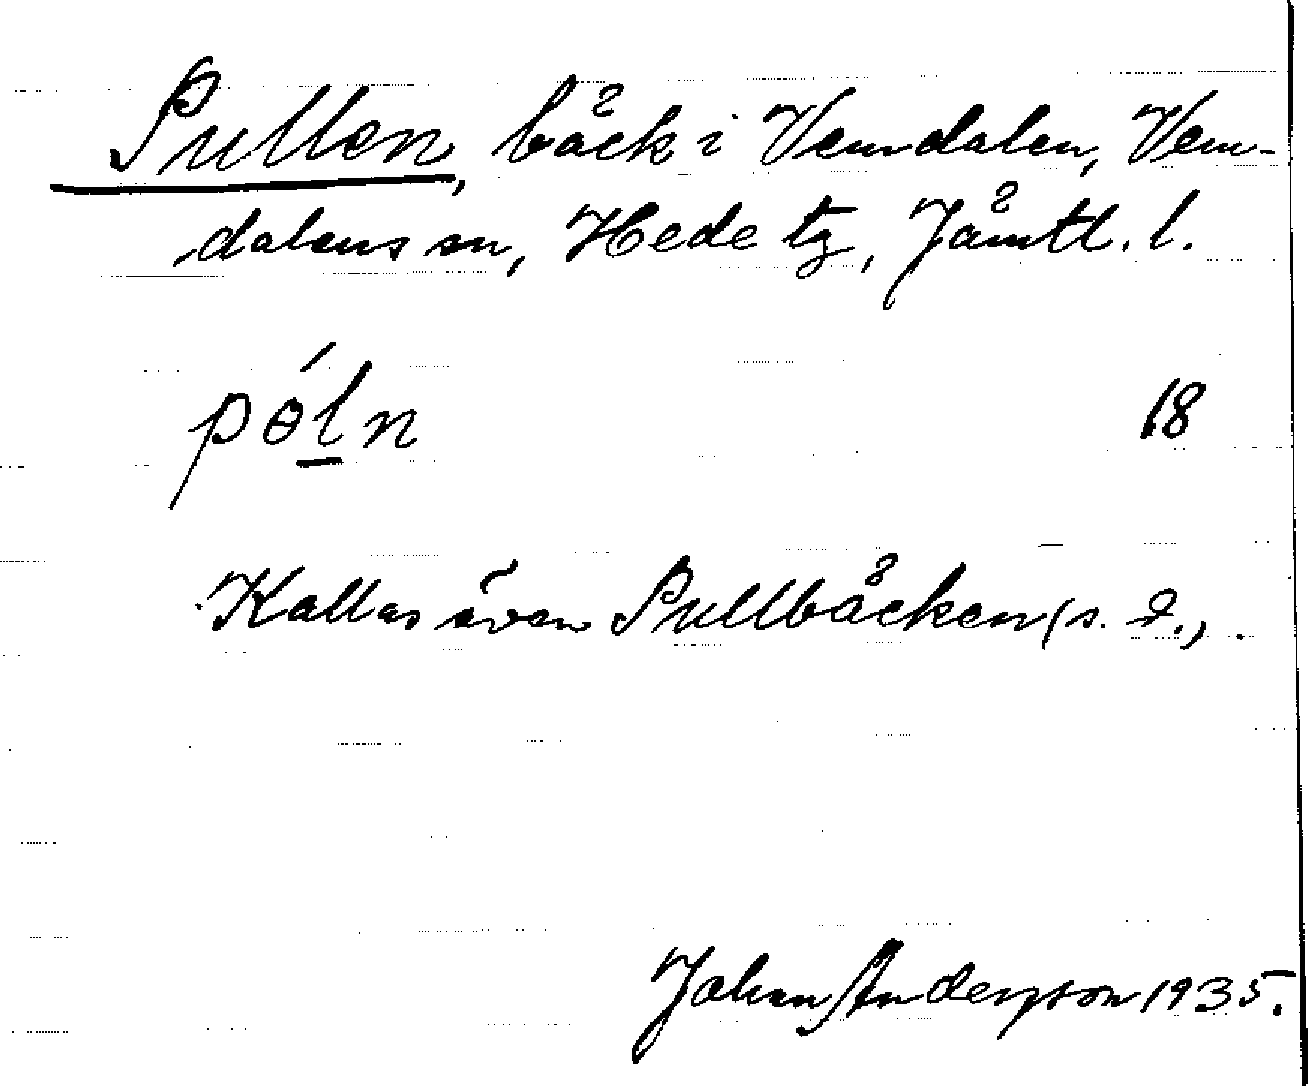 Pullen, bäck i Vemdalen, Vem-
dalens sn, Hede tg, Jämtl. l.
pǿl̲n 18
Kallas även Pullbäcken (s. d.).
Johan Anderzson 1935.